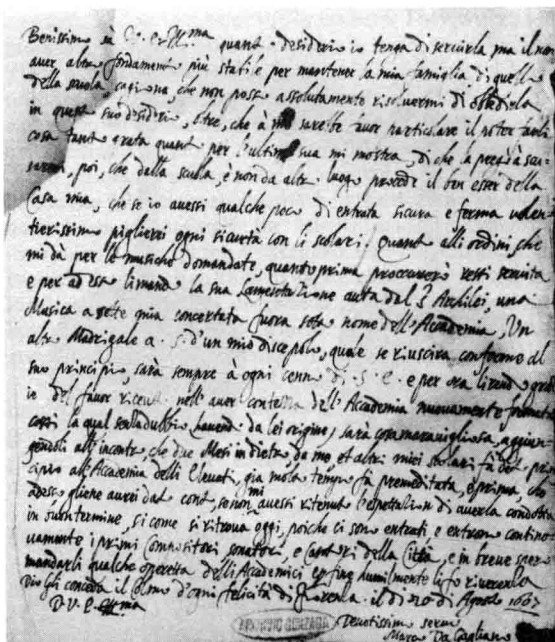 Benissimo sa V. E. Ill.ma quant. desiderio io tenga di servirla ma il non
aver altro fondamento più stabile per mantener la mia famiglia di quello
della scuola, cagiona, che non posso assolutamente risolvermi di obbedirla
in questo suo desiderio, oltre, che à me sarebbe favor particolare il potere farli
cosa tanto grata quanto per l'ultima sua mi mostra, di che la prego à scu=
sarmi, poi, che dalla scuola, e non da altro luogo procede il ben esser della
Casa mia, che se io avessi qualche poco di entrata sicura e ferma volen
tierissimo piglierei ogni sicurtà con li scolari. Quanto alli ordini, che
mi dà per le musiche domandate, quanto prima proccurerò resti servita
e per adesso li mando la sua auta dal S Archilei, una
Musica a sette già concertata fuora sotto nome dell'Accademia, Un
altro Madrigale a. 5. d'un mio discepolo, quale se riuscirà conforme al
suo principio sarà sempre à ogni cenno di. S. E. e per ora li rendo grazie
del favor ricevuto nell'aver contezza dell'Accademia nuovamente formata
costì la qual senza dubbio (havendo da lei origine) sarà cosa maravigliosa, aggiun
gendoli all'incontro, che due Mesi indietro, da me, et altri miei scolari fù dato prin
cipio all'Accademia delli Elevati, già molto tempo fà premeditata, e prima, che
adesso gliene averei dato conto, se non mi avessi ritenuto l'espettation di averla condotta
in buon termine, si come si ritrova oggi, poiche ci sono entrati, e entrono contino
vamente i primi Compositori, sonatori, e Cantori della Città, e in breve spero
mandarli qualche operetta delli Accademici e per fine humilmente li fo riverenza
Dio gli conceda il colmo d'ogni felicità di Fiorenza il dì 20 di Agosto 1607
D. V. E. Ill.ma
Devotissimo servo
Marco Da Gagliano
ARCHIVIO GONZAGA